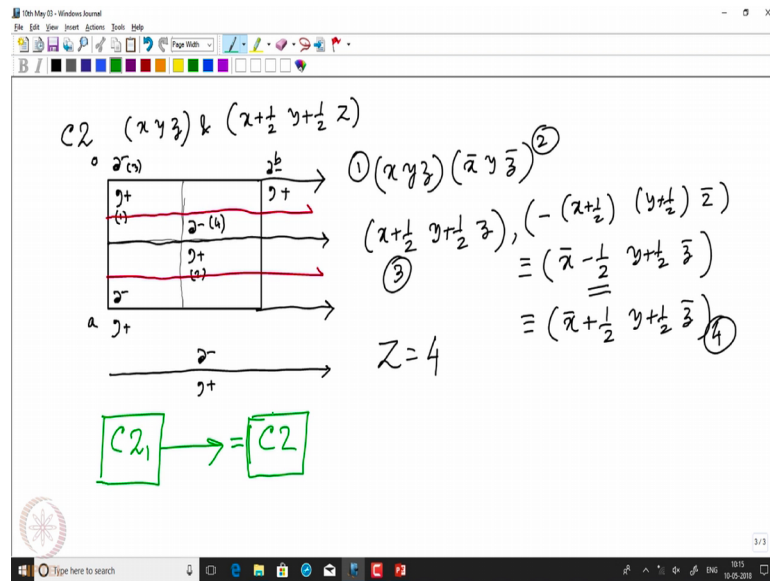 10th May 03 - Windows Journal
File Edit View Insert Actions Tools Help
Page Width
B I
C2 (x y z) & (x+½ y+½ z)
o
b
(3)
+ (1)
- (4)
+
+ (2)
-
a +
-
+
① (x y z) (x̄ y z̄) ②
(x+½ y+½ z), (-(x+½) (y+½) z̄)
③
≡ (x̄ - ½ y+½ z̄)
≡ (x̄+½ y+½ z̄) ④
Z=4
C2₁ → = C2
3/3
Type here to search
ENG
10:15
10-05-2018